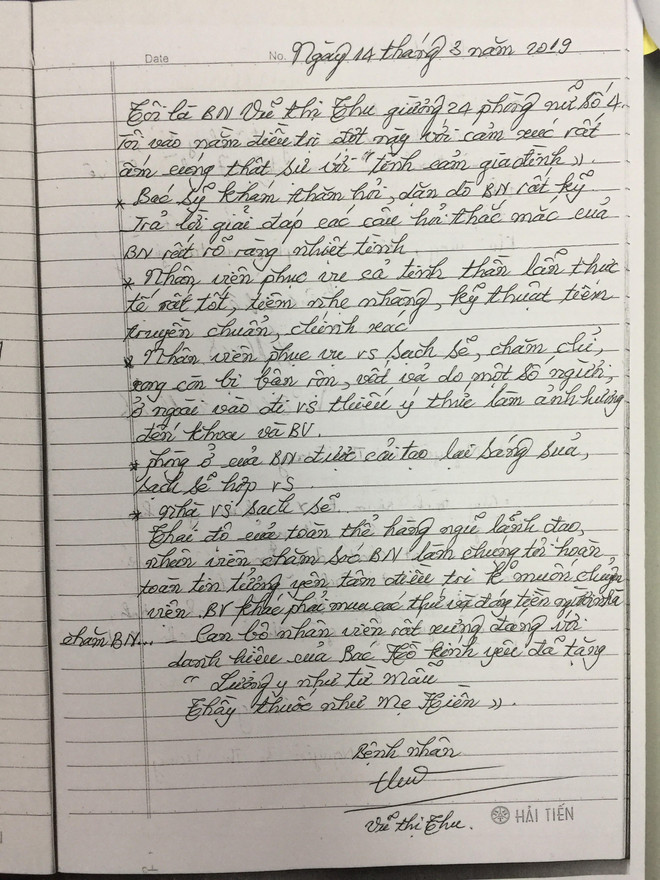 Date No. Ngày 14 tháng 3 năm 2019
Tôi là BN Vũ thị Thu giường 24 phòng nữ số 4.
Tôi vào nằm điều trị đợt này với cảm xúc rất
ấm cúng thật sự với "tình cảm gia đình".
* Bác sỹ khám thăm hỏi, dặn dò BN rất kỹ
Trả lời giải đáp các câu hỏi thắc mắc của
BN rất rõ ràng nhiệt tình
* Nhân viên phục vụ cả tinh thần lẫn thực
tế rất tốt, tiêm nhẹ nhàng, kỹ thuật tiêm
truyền chuẩn, chính xác
* Nhân viên phục vụ vs sạch sẽ, chăm chỉ,
song còn bị bận rộn, vất vả do một số người,
ở ngoài vào đi vs thiếu ý thức làm ảnh hưởng
đến khoa và BV.
* phòng ở của BN được cải tạo lại sáng sủa,
sạch sẽ hợp vs
* nhà vs sạch sẽ
Thái độ của toàn thể hàng ngũ lãnh đạo,
nhân viên chăm sóc BN làm chúng tôi hoàn
toàn tin tưởng yên tâm điều trị k muốn chuyển
viện. BV khác phải mua các thứ và đóng tiền người nhà
chăm BN... Cán bộ nhân viên rất xứng đáng với
danh hiệu của Bác Hồ kính yêu đã tặng
"Lương y như từ mẫu
Thầy thuốc như Mẹ Hiền".
Bệnh nhân
Thu
Vũ thị Thu.
HẢI TIẾN